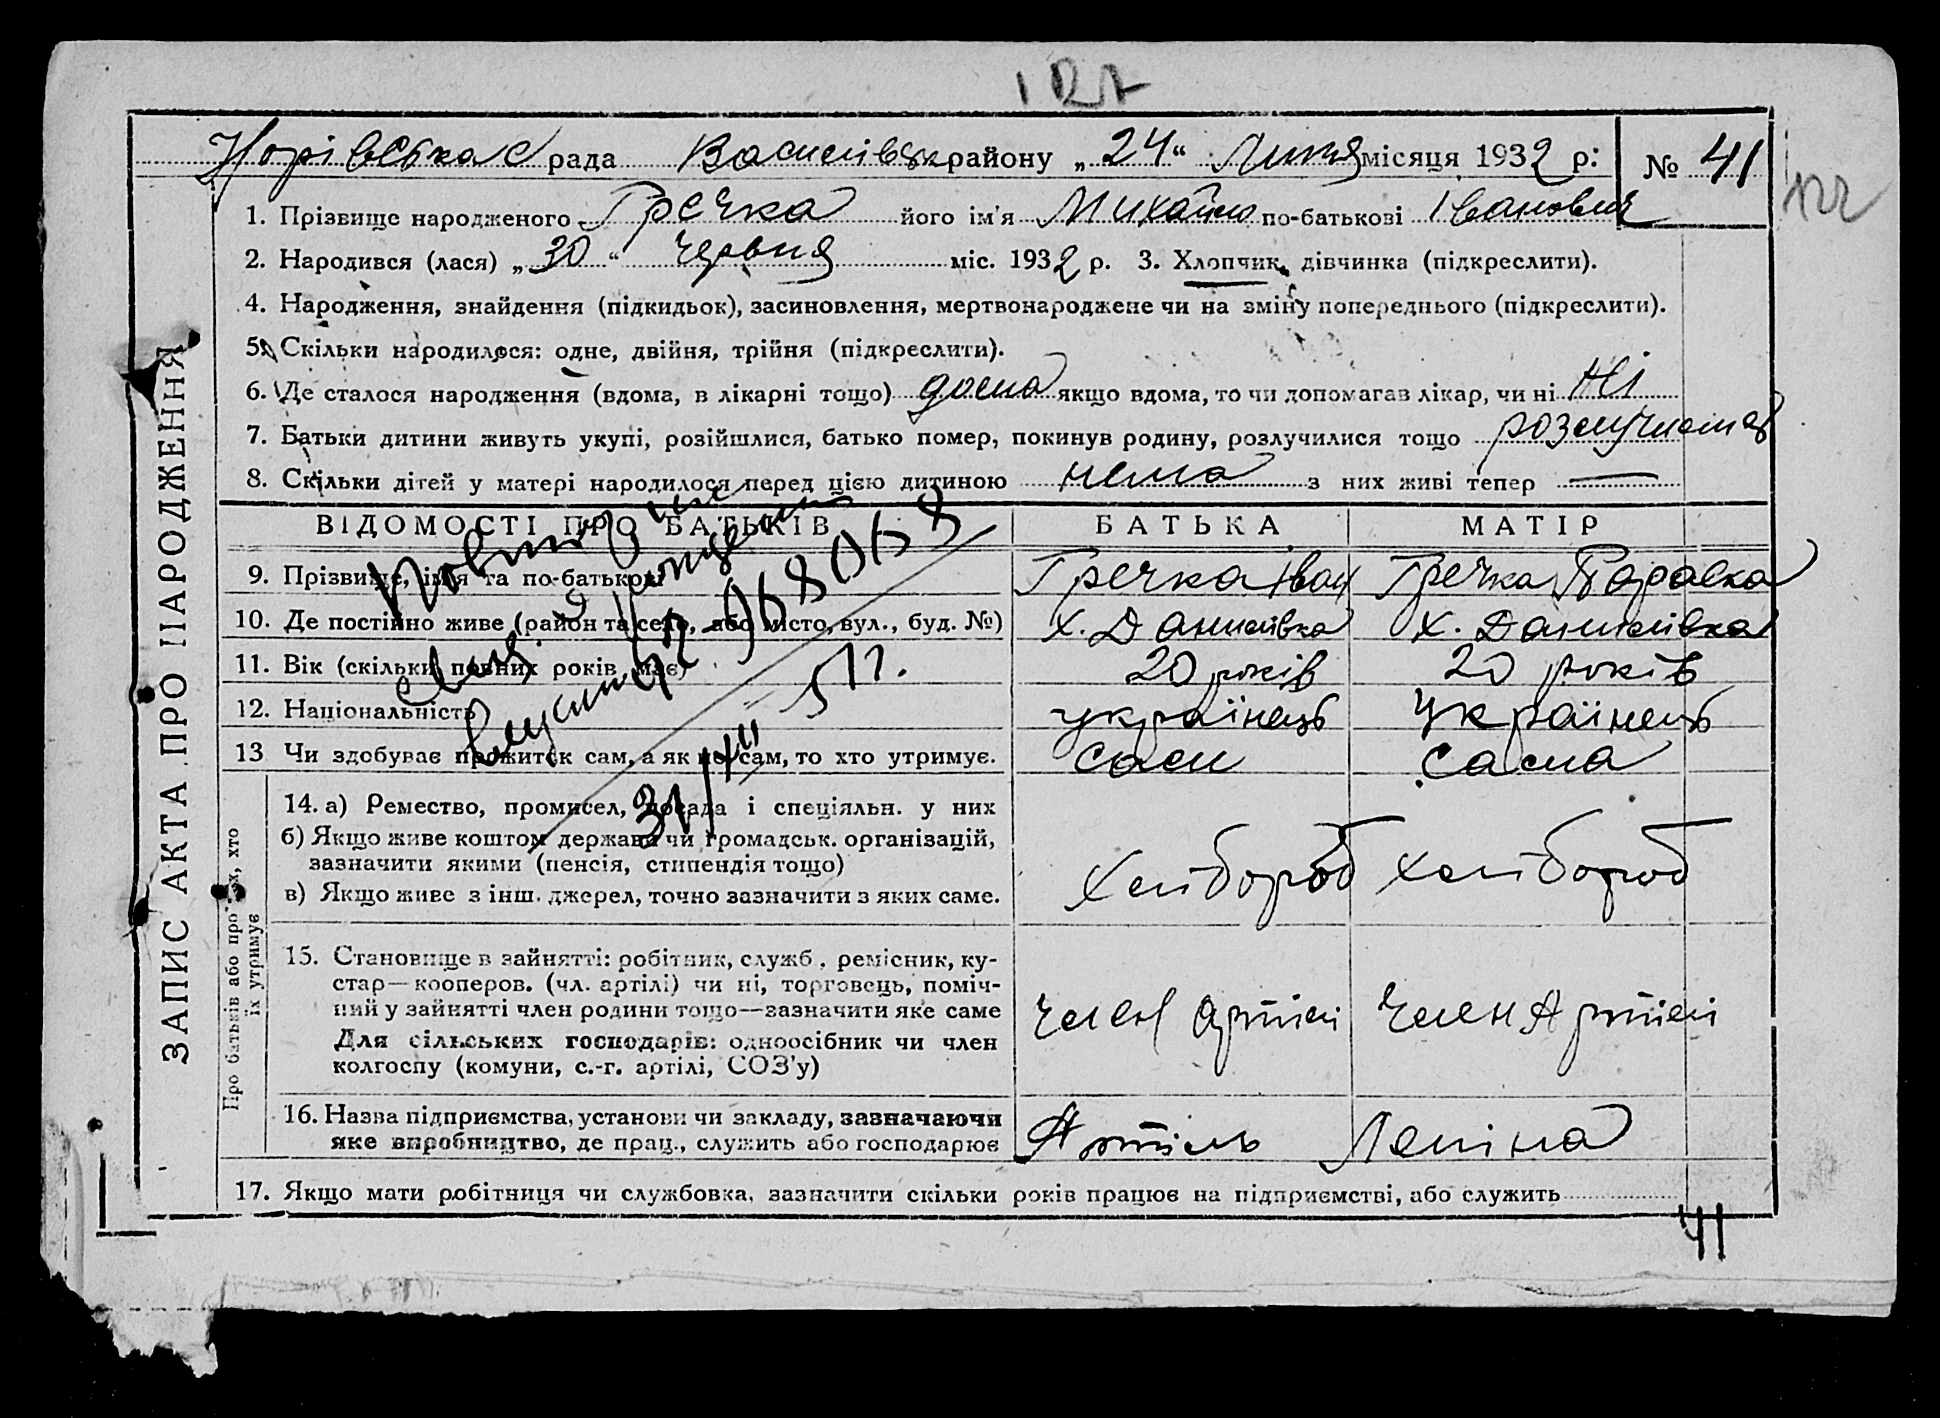 127
рада Василівськ району „24“ Липня місяця 1932 р: № 41
122
1. Прізвище народженого Гречка його ім'я Михайло по-батькові Іванович
2. Народився (лася) „30“ червня міс. 1932 р. 3. Хлопчик, дівчинка (підкреслити).
4. Народження, знайдення (підкидьок), засиновлення, мертвонароджене чи на зміну попереднього (підкреслити).
5. Скільки народилося: одне, двійня, трійня (підкреслити).
6. Де сталося народження (вдома, в лікарні тощо) дома якщо вдома, то чи допомагав лікар, чи ні Ні
7. Батьки дитини живуть укупі, розійшлися, батько помер, покинув родину, розлучилися тощо
8. Скільки дітей у матері народилося перед цією дитиною нема з них живі тепер —
ЗАПИС АКТА ПРО НАРОДЖЕННЯ
ВІДОМОСТІ ПРО БАТЬКІВ БАТЬКА МАТІР
9. Прізвище, ім'я та по-батькові Гречка Іван Гречка
10. Де постійно живе (район та село, або місто, вул., буд. №) х. Данилівка х. Данилівка
11. Вік (скільки повних років має) 20 років 20 років
12. Національність українець українець
13 Чи здобуває прожиток сам, а як не сам, то хто утримує. сам сама
Про батьків або про тих, хто
їх утримує
14. а) Ремество, промисел, посада і спеціяльн. у них
б) Якщо живе коштом держави чи громадськ. організацій,
зазначити якими (пенсія, стипендія тощо)
в) Якщо живе з інш. джерел, точно зазначити з яких саме.
хлібороб хлібороб
15. Становище в зайнятті: робітник, служб., ремісник, ку-
стар—кооперов. (чл. артілі) чи ні, торговець, поміч-
ний у зайнятті член родини тощо—зазначити яке саме
Для сільських господарів: одноосібник чи член
колгоспу (комуни, с.-г. артілі, СОЗ'у)
член артілі член Артілі
16. Назва підприємства, установи чи закладу, зазначаючи
яке виробництво, де прац., служить або господарює
Артіль Леніна
17. Якщо мати робітниця чи службовка, зазначити скільки років працює на підприємстві, або служить
Повторне
31/XII 51г.
41